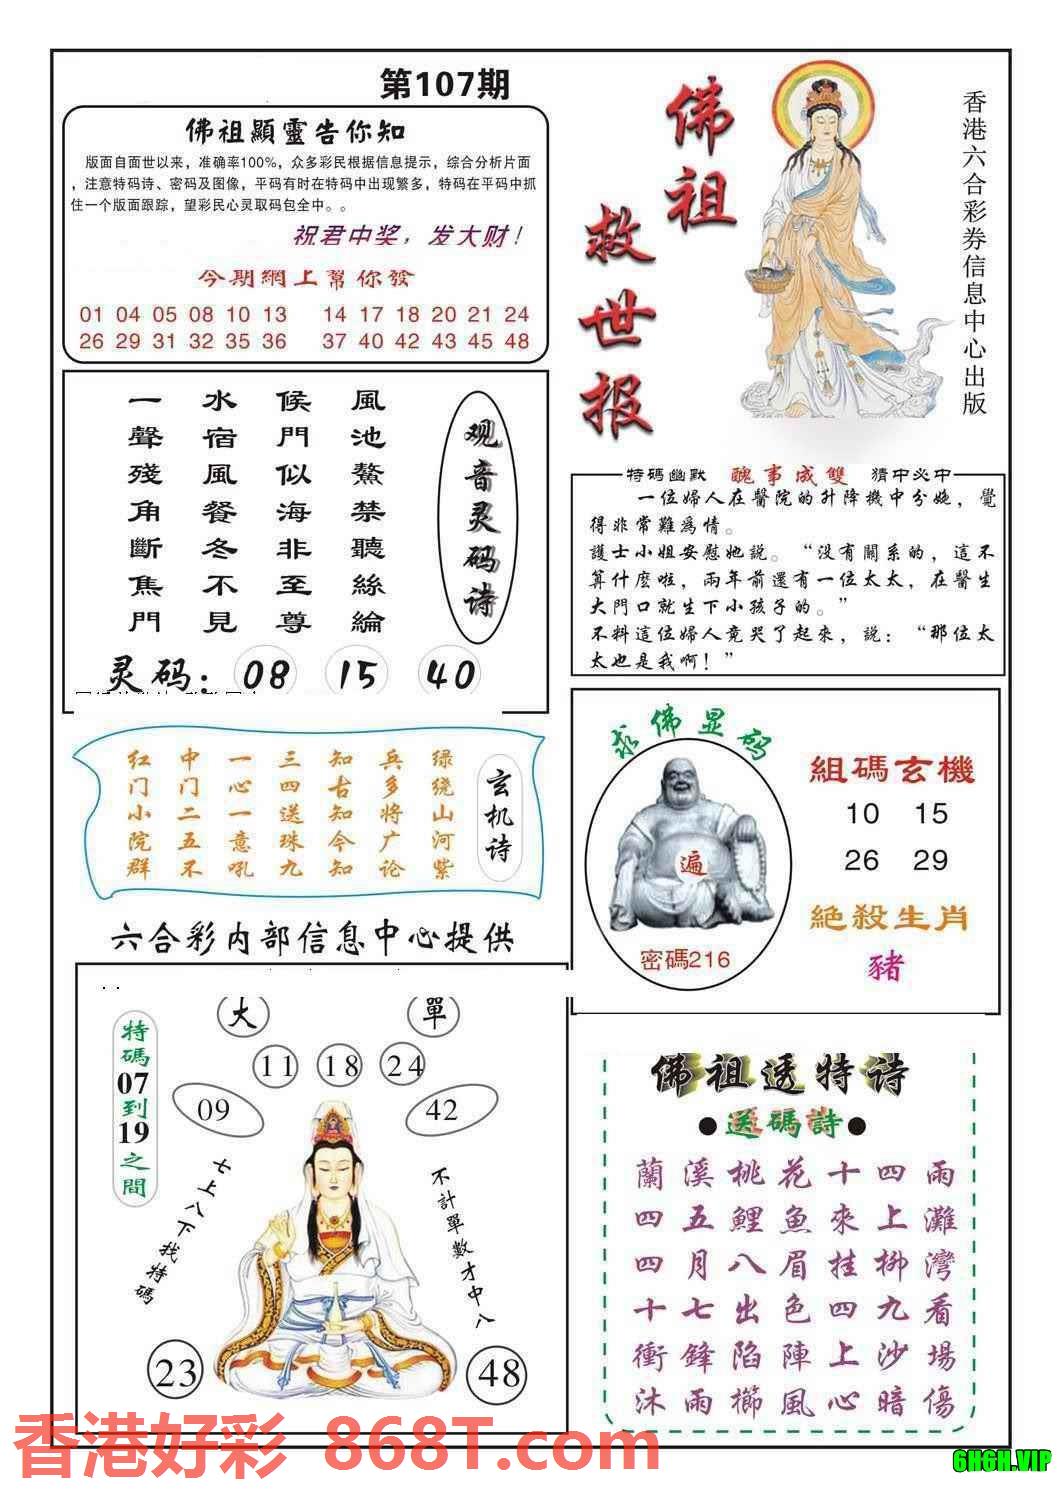 第107期
佛祖顯靈告你知
版面自面世以来，准确率100%，众多彩民根据信息提示，综合分析片面
，注意特码诗、密码及图像，平码有时在特码中出现繁多，特码在平码中抓
住一个版面跟踪，望彩民心灵取码包全中。。
祝君中奖，发大财！
今期網上幫你發
01 04 05 08 10 13 14 17 18 20 21 24
26 29 31 32 35 36 37 40 42 43 45 48
佛祖
救世报
香港六合彩券信息中心出版
观音灵码诗
風池鰲禁聽絲綸
候門似海非至尊
水宿風餐冬不見
一聲殘角斷焦門
灵码：08 15 40
特碼幽默 醜事成雙 猜中必中
一位婦人在醫院的升降機中分娩，覺
得非常難爲情。
護士小姐安慰她説。“没有關系的，這不
算什麽啦，兩年前還有一位太太，在醫生
大門口就生下小孩子的。”
不料這位婦人竟哭了起來，説：“那位太
太也是我啊！”
玄机诗
绿绕山河紫
兵多将广论
知古知今知
三四送珠九
一心一意吼
中门二五不
红门小院群
求佛显码
遍
密碼216
組碼玄機
10 15
26 29
絶殺生肖
豬
六合彩内部信息中心提供
大 單
11 18 24
09 42
特碼07到19之間
七上八下找特碼
不計單數才中八
23 48
佛祖透特诗
●送碼詩●
蘭溪桃花十四雨
四五鯉魚來上灘
四月八眉挂柳灣
十七出色四九看
衝鋒陷陣上沙場
沐雨櫛風心暗傷
香港好彩 868T.com
6H6H.VIP